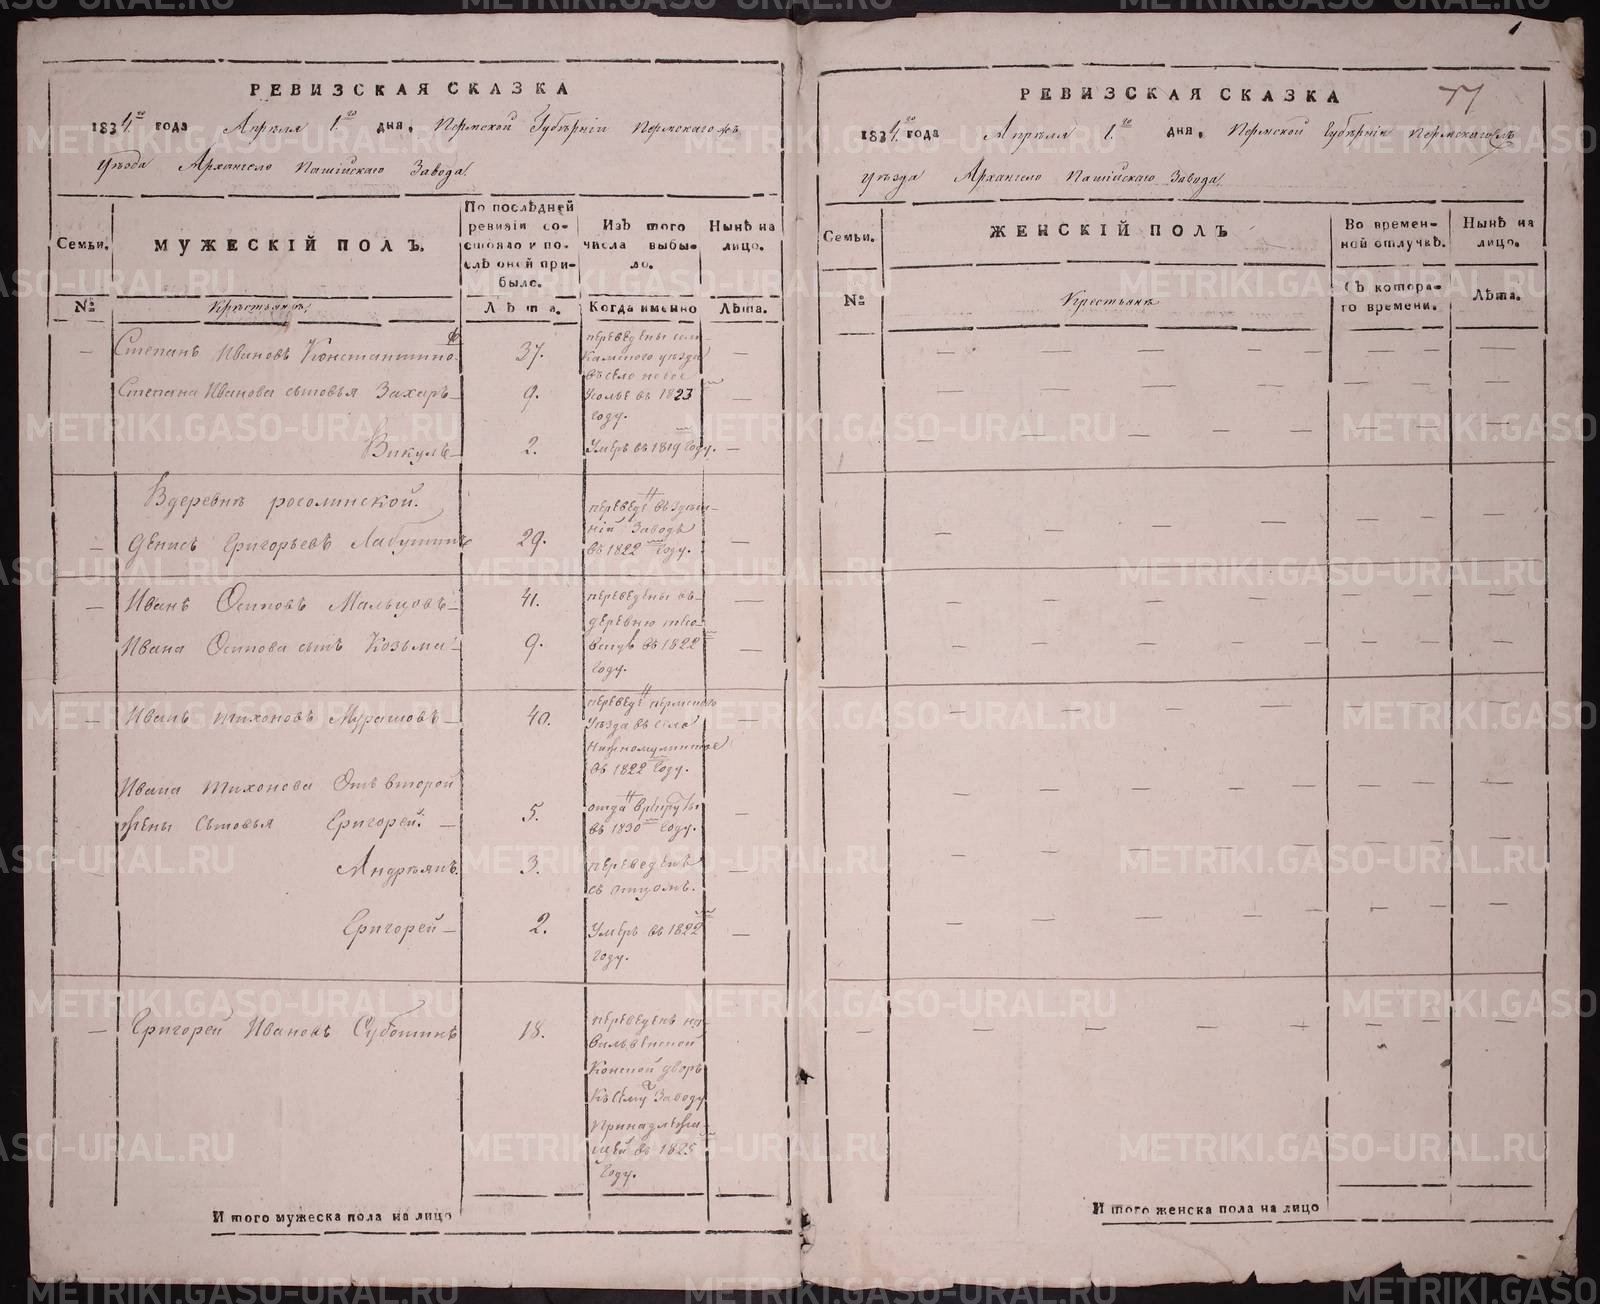 РЕВИЗСКАЯ СКАЗКА
1834.го года Апреля 1.го дня, Пермской Губерніи Пермскаго
уѣзда Архангело Пашійскаго Завода
Семьи.
МУЖЕСКІЙ ПОЛЪ.
По послѣдней
ревизіи со-
стояло и по-
слѣ оной при-
было.
Изъ того
числа выбы-
ло.
Нынѣ на
лицо.
№
Крестьянъ
Лѣта.
Когда именно
Лѣта.
— Степанъ Ивановъ Константино
37.
переведены
Камского уѣзда
—
въ село новое
Степана Иванова сыновья Захаръ —
9.
Усолье въ 1823
году.
—
Викулъ —
2.
Умеръ въ 1819 году.
—
В деревнѣ росолинской.
— Денисъ Григорьевъ
29.
переведе
ній Заводъ
въ 1822 году.
—
— Иванъ Осиповъ Мальцовъ —
41.
переведены въ
деревню
—
Ивана Осипова сынъ Козьма —
9.
въ 1822
году.
—
— Иванъ Тихоновъ Мурашовъ —
40.
переведе пермского
Уѣзда въ село
нижномулинское
въ 1822 году.
—
Ивана Тихонова Отъ второй
жены сыновья Григорей. —
5.
отда в рекруты
въ 1830 году.
—
Андреянъ.
3.
переведенъ
съ отцомъ.
—
Григорей —
2.
Умеръ въ 1822
году.
—
— Григорей Ивановъ Суботинъ
18.
переведенъ на
Вильвенской
Конской дворъ
Къ сему Заводу
принадлежа-
щей въ 1825
году.
—
И того мужеска пола на лицо
РЕВИЗСКАЯ СКАЗКА
77
1834.го года Апреля 1.го дня, Пермской Губерніи Пермскаго
уѣзда Архангело Пашійскаго Завода
Семьи.
ЖЕНСКІЙ ПОЛЪ
Во времен-
ной отлучкѣ.
Нынѣ на
лицо.
№
Крестьянъ
Съ котора-
го времени.
Лѣта.
И того женска пола на лицо
METRIKI.GASO-URAL.RU